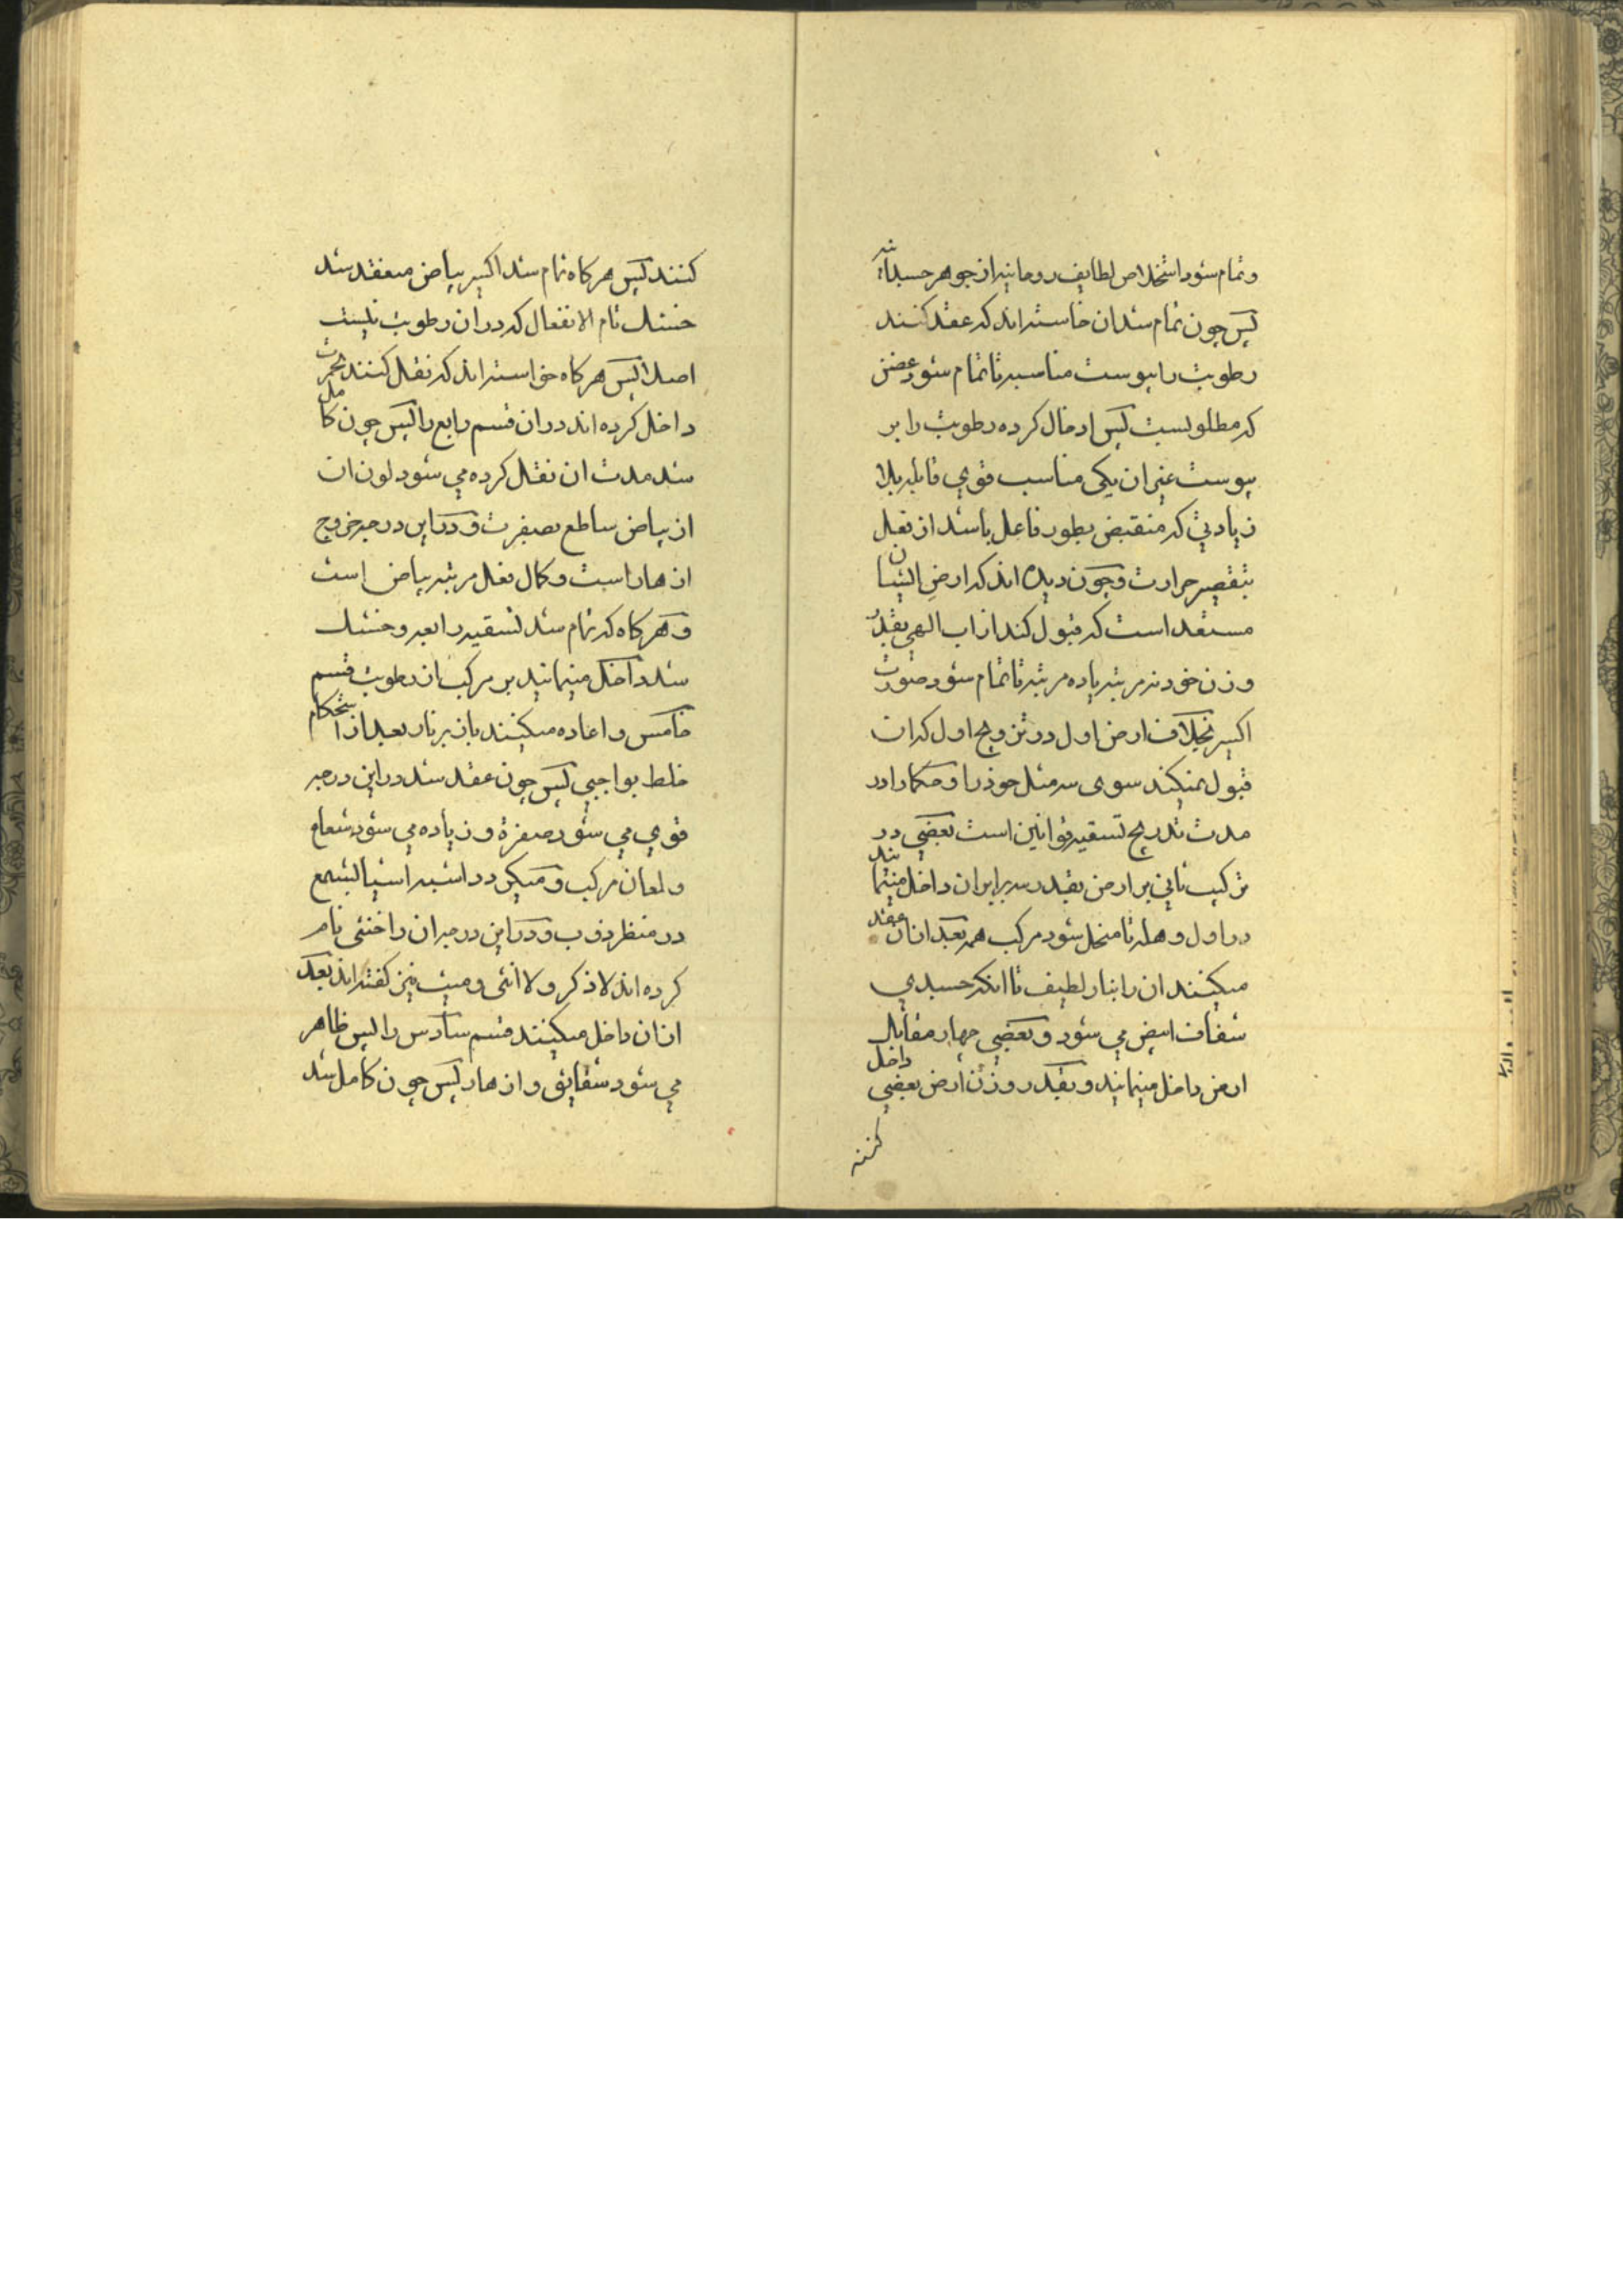 وتمام شود استخلاص لطایف روحانیه از جوهر جسدانیه
پس چون تمام شد ان خاسته اند که عقد کنند
رطوبت را بیوست مناسبه تا تمام شود غضن
که مطلوبست پس ادخال کرده رطوبت را بر
یبوست غیر ان یکی مناسب قوی قابله بلا
زیادتی که منقبض بطور فاعل باشد از نقل
بتقصیر حرارت و چون دیده اند که ارض الشان
مستعد است که قبول کند از اب الهی بقدر
وزن خود نه مرتبه یا ده مرتبه تا تمام شود صورت
اکسیر بخلاف ارض اول در تزویج اول که ان
قبول نمیکند سوی سه مثل خود را و حکما را در
مدت تدریج تسقیه قوانین است بعضی در
ترکیب ثانی بر ارض بقدر سه برابر ان داخل مینمایند
در اول وهله تا منحل شود مرکب همه بعد از ان عقد
میکنند ان را بنار لطیف تا انکه جسدی
شفاف ابیض می شود و بعضی چهار مقابل
ارض داخل مینمایند و بقدر وزن ارض بعضی داخل
کنند
کنند پس هرکاه تمام شد اکسیر بیاض منعقد شد
خشک تام الانفعال که در ان رطوبت نیست
اصلا پس هرکاه خواسته اند که نقل کنند بحمرت
داخل کرده اند در ان قسم رابع را پس چون کامل
شد مدت ان نقل کرده می شود لون ان
از بیاض ساطع بصفرت و در این درجه خروج
از هار است و کمال نقل مرتبه بیاض است
و هرکاه که تمام شد تسقیه رابعه و خشک
شد داخل مینمایند بر مرکب ان رطوبت قسم
خامس و اعاده میکنند باز بر نار بعد از استحکام
خلط بواجبی پس چون عقد شد در این درجه
قوی می شود صفرة و زیاده می شود شعاع
و لمعان مرکب و میکردد اشبه اشیا بشمع
در منظر ذوب و در این درجه ان را خنثی نام
کرده اند لا ذکر و لا انثی و میت نیز کفته اند بعد
از ان داخل میکنند قسم سادس را پس ظاهر
می شود شقایق و از هار پس چون کامل شد